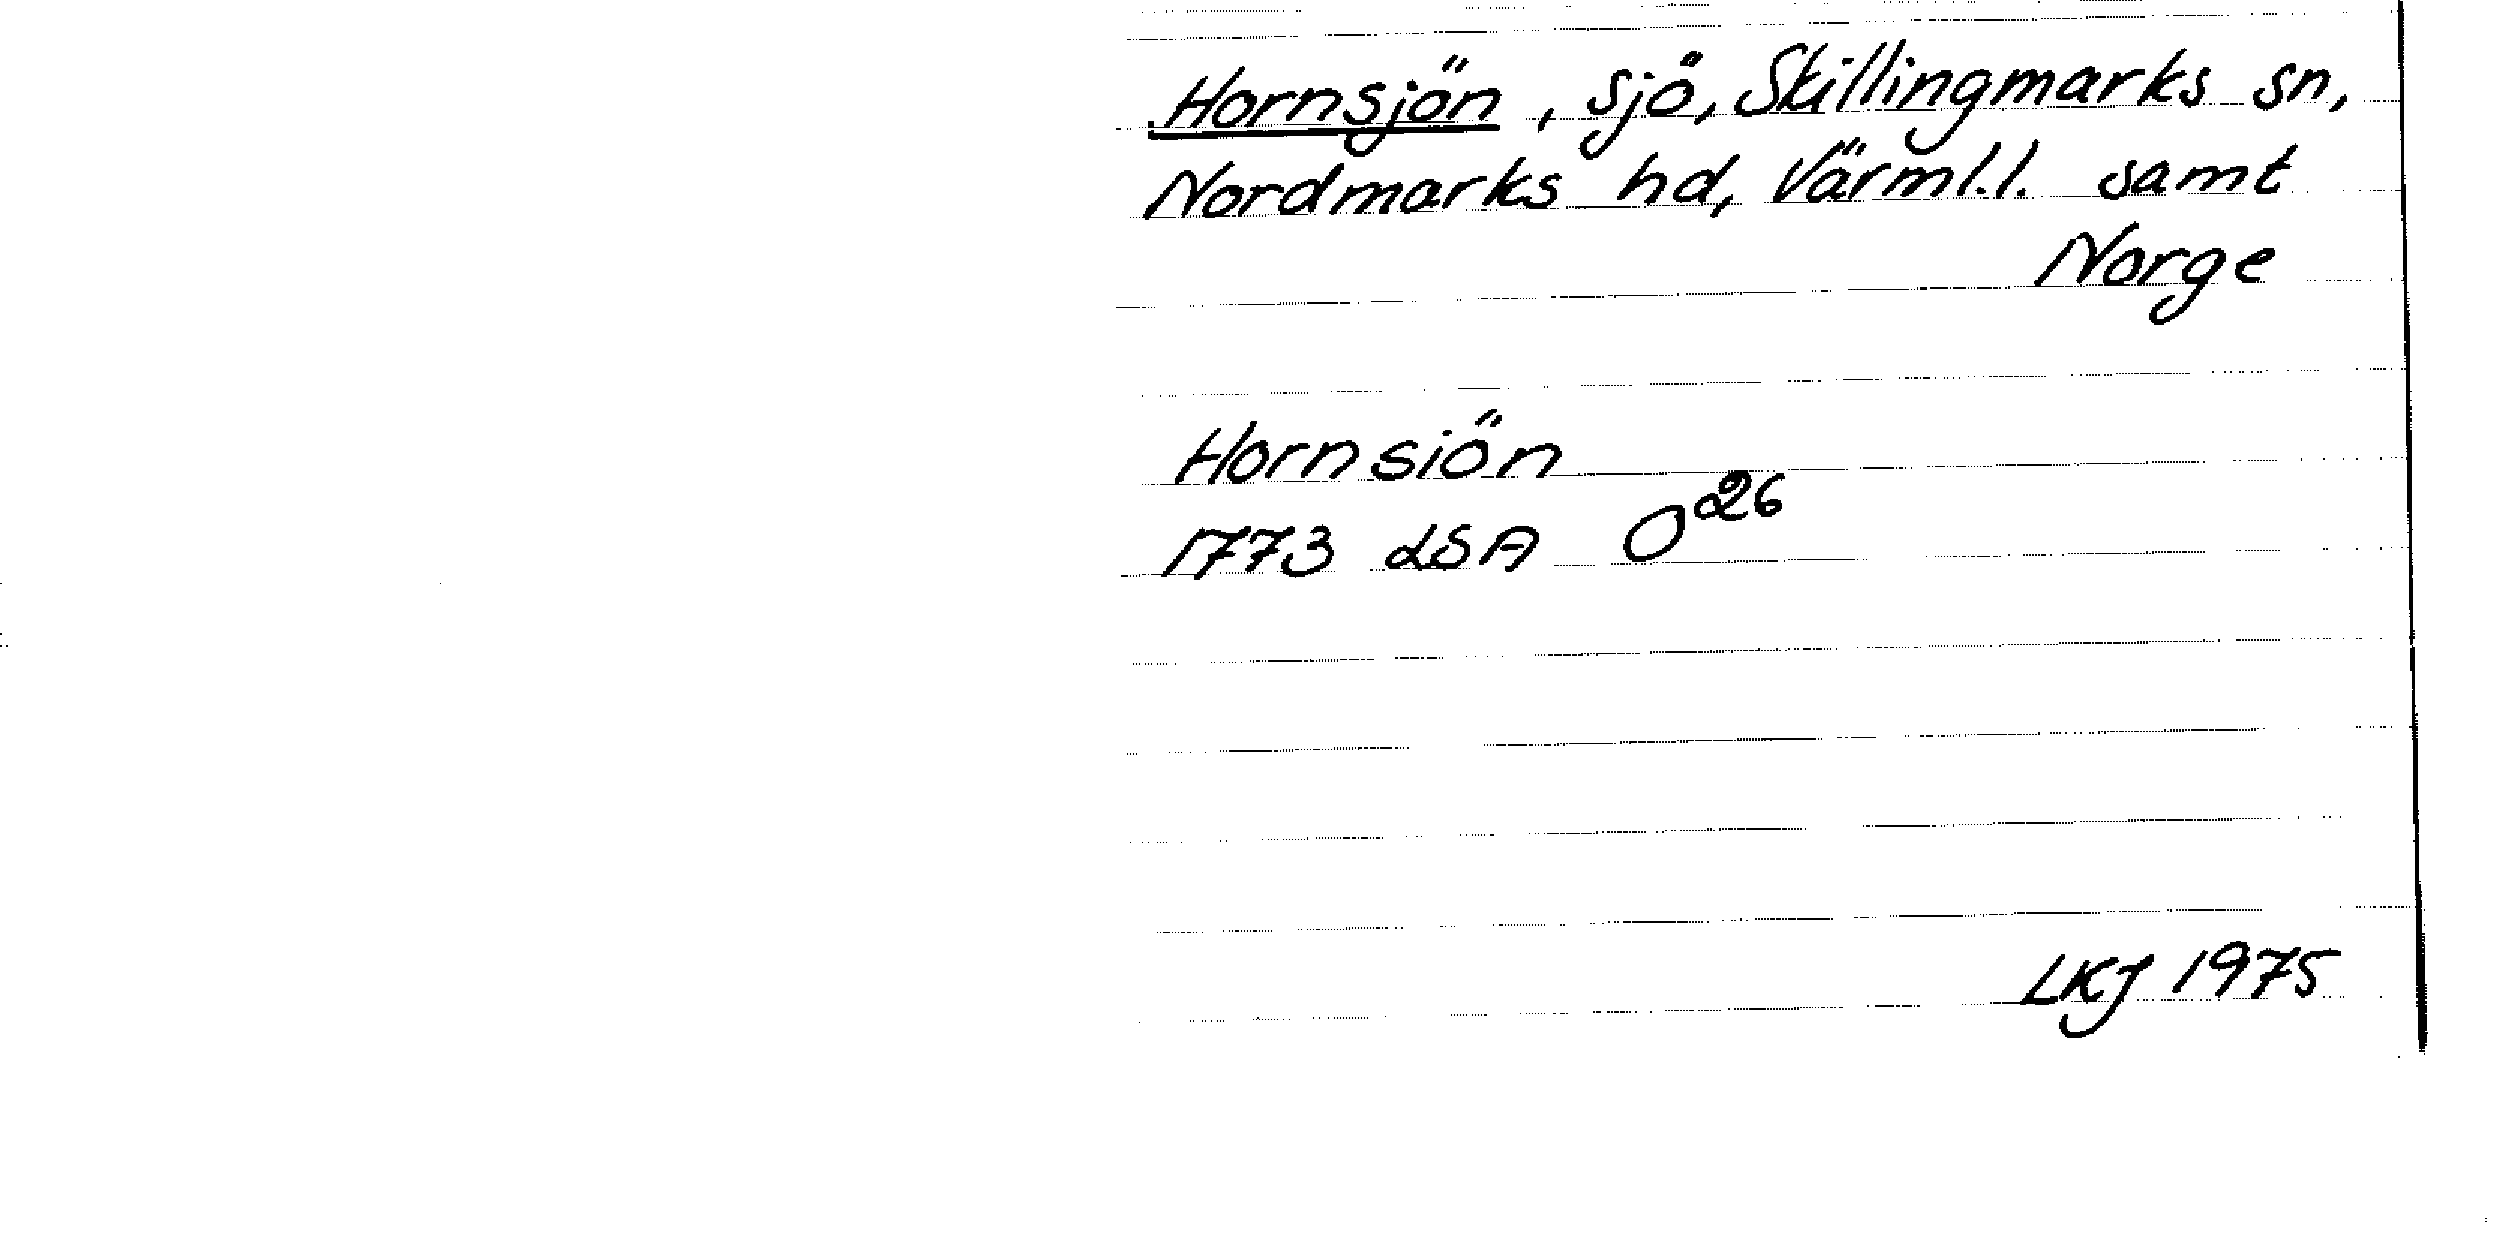 Hornsjön, sjö, Skillingmarks sn,
Nordmarks hd, Värml.l. samt
Norge
Hornsiön
1773 LSA O²⁶
LKJ 1975